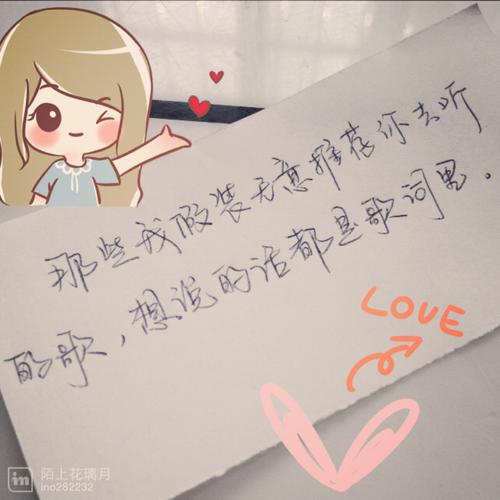 那些我假装无意推荐你去听
的歌，想说的话都是歌词里。
LOVE
in
陌上花璃月
ino282232